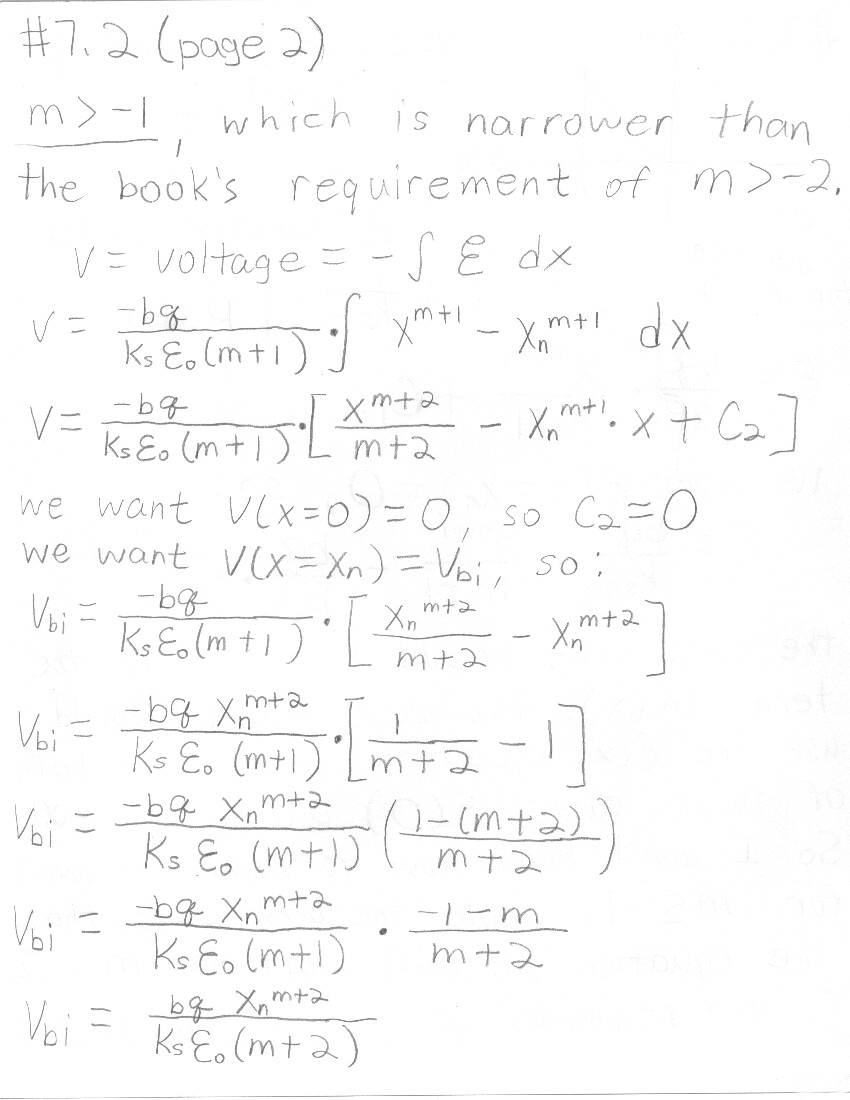 #7.2 (page 2)
m > -1, which is narrower than
the book's requirement of m > -2.
V = voltage = - ∫ ℰ dx
V = -bq / (K_s ε_0 (m+1)) · ∫ x^(m+1) - x_n^(m+1) dx
V = -bq / (K_s ε_0 (m+1)) · [ x^(m+2) / (m+2) - x_n^(m+1) · x + C_2 ]
we want V(x=0) = 0, so C_2 = 0
we want V(x=x_n) = V_bi, so:
V_bi = -bq / (K_s ε_0 (m+1)) · [ x_n^(m+2) / (m+2) - x_n^(m+2) ]
V_bi = -bq x_n^(m+2) / (K_s ε_0 (m+1)) · [ 1 / (m+2) - 1 ]
V_bi = -bq x_n^(m+2) / (K_s ε_0 (m+1)) ( (1-(m+2)) / (m+2) )
V_bi = -bq x_n^(m+2) / (K_s ε_0 (m+1)) · (-1-m) / (m+2)
V_bi = bq x_n^(m+2) / (K_s ε_0 (m+2))